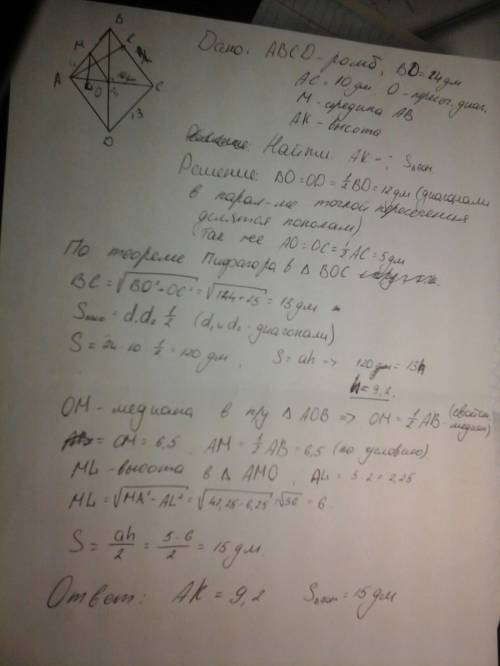 Дано: ABCD-ромб, BD=24дм
AC=10дм, O-пересе. диаг.
M-средина AB
AK-высота
Найти: AK-; S
Решение: BO=OD=½BD=12дм (диагонали
в парал-ме точкой пересечения
делятся пополам)
Так же AO=OC=½AC=5дм
По теореме Пифагора в △ BOC
BC=√BO²+OC²=√144+25=13дм
S=d₁d₂½ (d₁ и d₂-диагонали)
S=24·10·½=120дм, S=ah => 120дм=13h
h=9,2
OM-медиана в п/у △ AOB => OM=½AB (свойство медиан)
=OM=6,5, AM=½AB=6,5 (по условию)
ML-высота в △ AMO, AL=5:2=2,25
ML=√MA²-AL²=√42,25-6,25=√36=6
S=ah/2=5·6/2=15дм
Ответ: AK=9,2 S=15дм
B
M
K
A
C
O
L
D
13